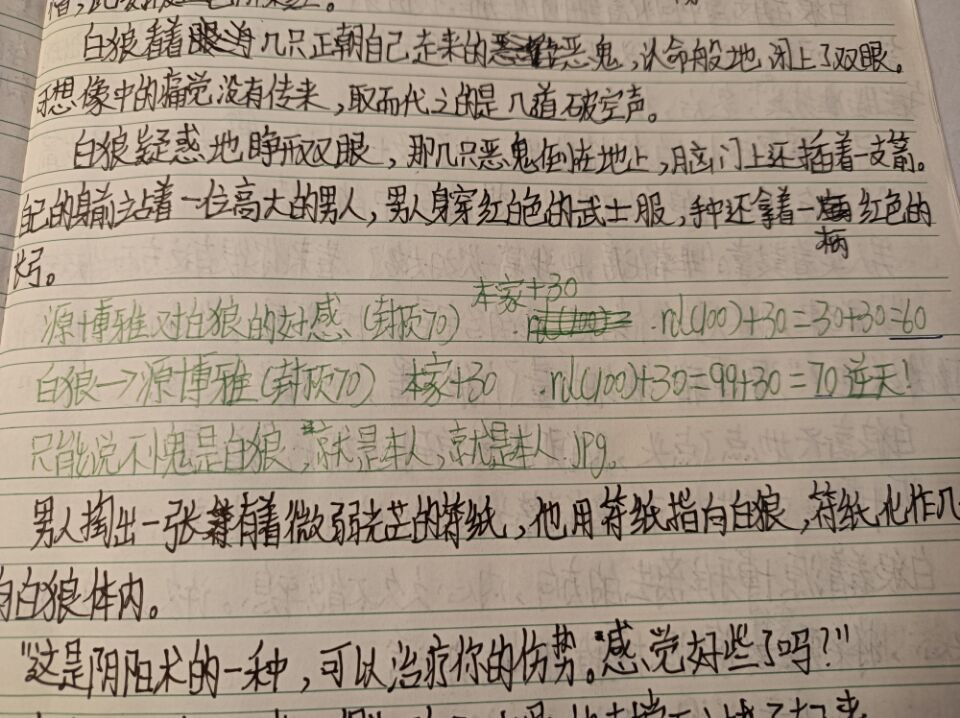 白狼看着眼前几只正朝自己走来的恶鬼，认命般地闭上了双眼。
可想像中的痛觉没有传来，取而代之的是几道破空声。
白狼疑惑地睁开双眼，那几只恶鬼倒在地上，脑门上还插着一支箭。
自己的身前立占着一位高大的男人，男人身穿红白色的武士服，手中还拿着一柄红色的
长弓。
本家+30
源博雅对白狼的好感（封顶70） .rd(100)+30=30+30=60
白狼→源博雅（封顶70） 本家+30 .rd(100)+30=99+30=70逆天！
只能说不愧是白狼，就是本人，就是本人.jpg。
男人掏出一张有着微弱光芒的符纸，他用符纸指向白狼，符纸化作几
向白狼体内。
"这是阴阳术的一种，可以治疗你的伤势。感觉好些了吗？"